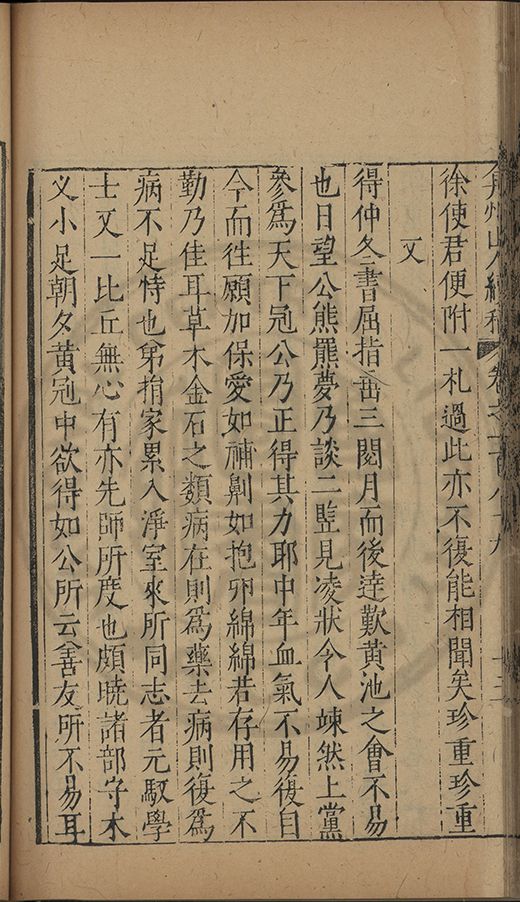 弇州山人續稿 卷之一百八十九 十三
徐使君便附一札過此亦不復能相聞矣珍重珍重
又
得仲冬書屈指垂三閱月而後達歎黃池之會不易
也日望公熊羆夢乃談二豎見凌狀令人竦然上黨
參爲天下冠公乃正得其力耶中年血氣不易復自
今而徃願加保愛如禰劓如抱卵綿綿若存用之不
勤乃佳耳草木金石之類病在則爲藥去病則復爲
病不足恃也弟捐家累入淨室來所同志者元馭學
士又一比丘無心有亦先師所度也頗曉諸部守木
义小足朝夕黃冠中欲得如公所云善友所不易耳